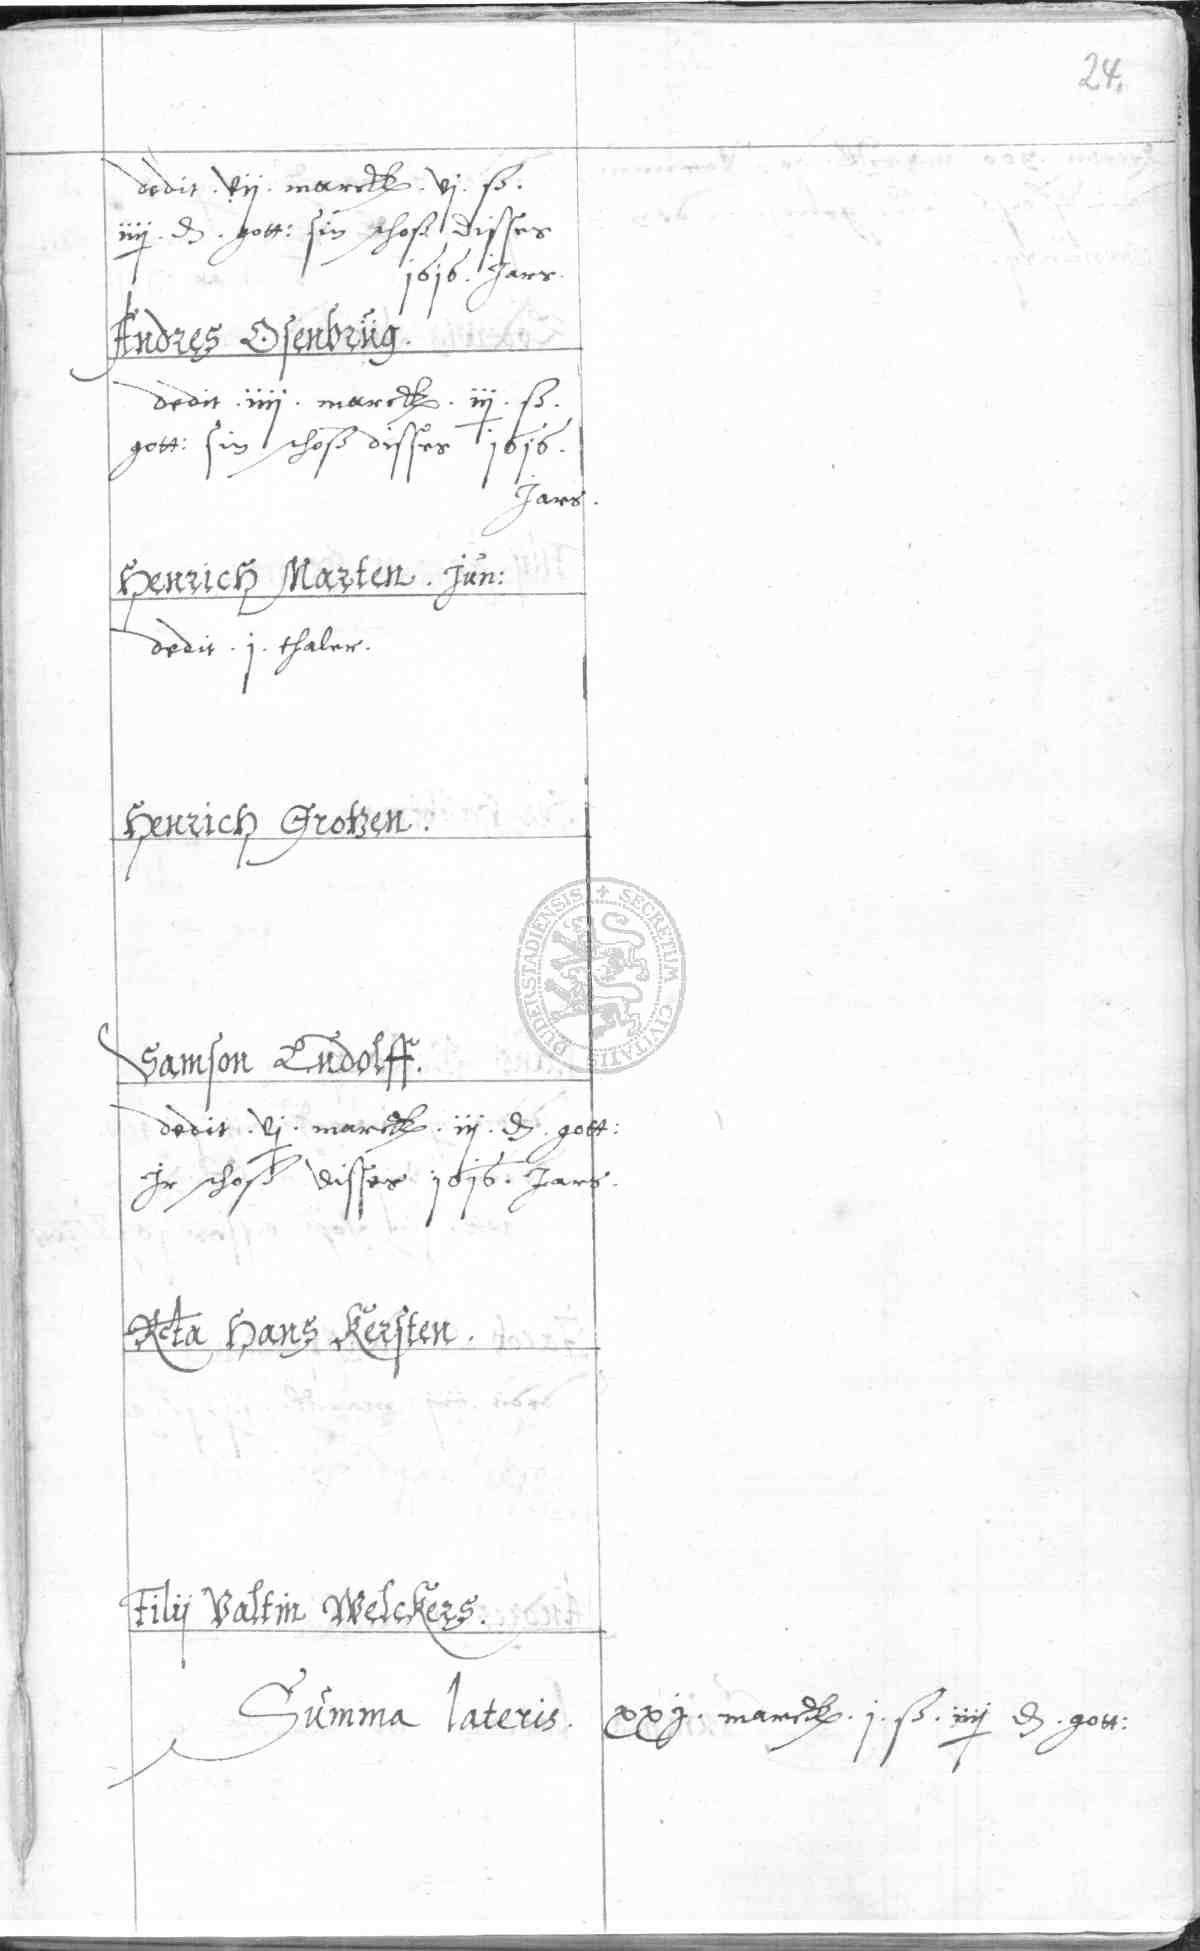 24.
dedit . vij . marck . vj . ß .
iiij . ₰ . gott: sin schoß disses
1616 . Jars .
Andres Osenbrüg .
dedit . iiij . marck . iij . ß .
gott: sin schoß disses 1616 .
Jars .
Henrich Marten . Jün:
dedit . j . thaler .
Henrich Grotzen .
Samson Ludolff .
dedit . vj . marck . iij . ₰ . gott:
Jr schoß disses 1616 . Jars .
Rcta Hans Kersten .
Filij Valtin Welckers .
Summa lateris . xxj . marck . j . ß . iiij ₰ . gott:
DUDERSTADIENSIS + SECRETUM CIVITATIS